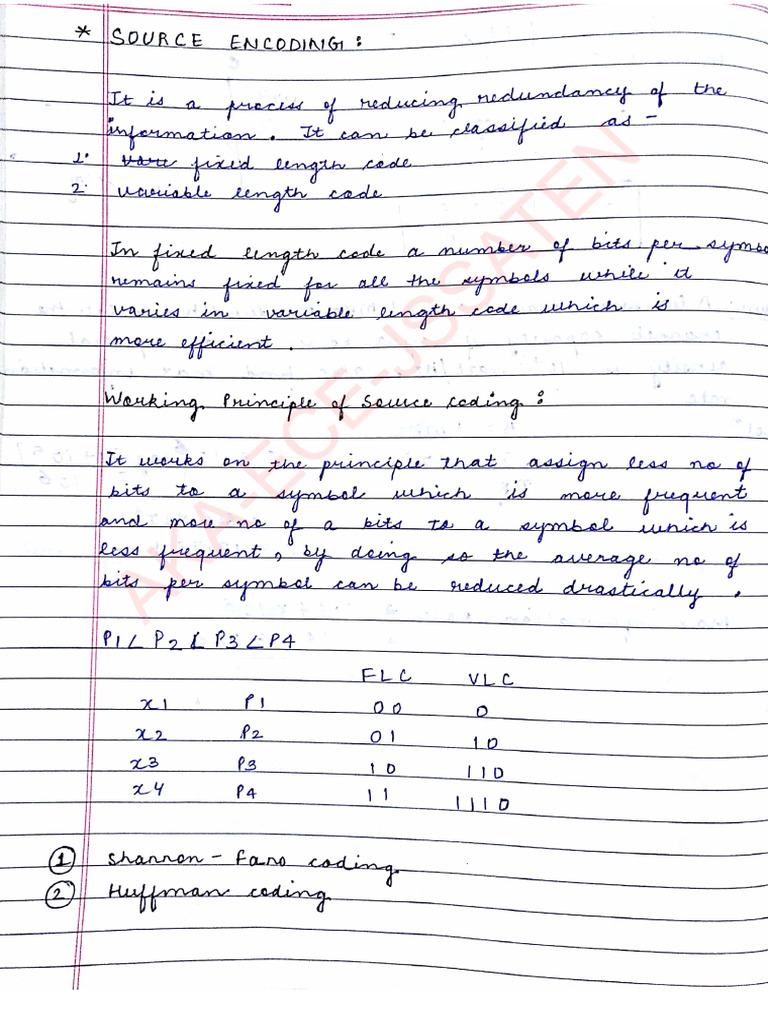 * SOURCE ENCODING :
It is a process of reducing redundancy of the
information . It can be classified as -
1. vare fixed length code
2. variable length code
In fixed length code a number of bits per symbo
remains fixed for all the symbols while it
varies in variable length code which is
more efficient .
Working Principle of Source coding :
It works on the principle that assign less no of
bits to a symbol which is more frequent
and more no of a bits to a symbol which is
less frequent, by doing so the average no of
bits per symbol can be reduced drastically .
P1 < P2 < P3 < P4
FLC VLC
x1 P1 00 0
x2 P2 01 10
x3 P3 10 110
x4 P4 11 1110
1 Shannon - Fano coding
2 Huffman coding
AKA-ECE-JSSATEN